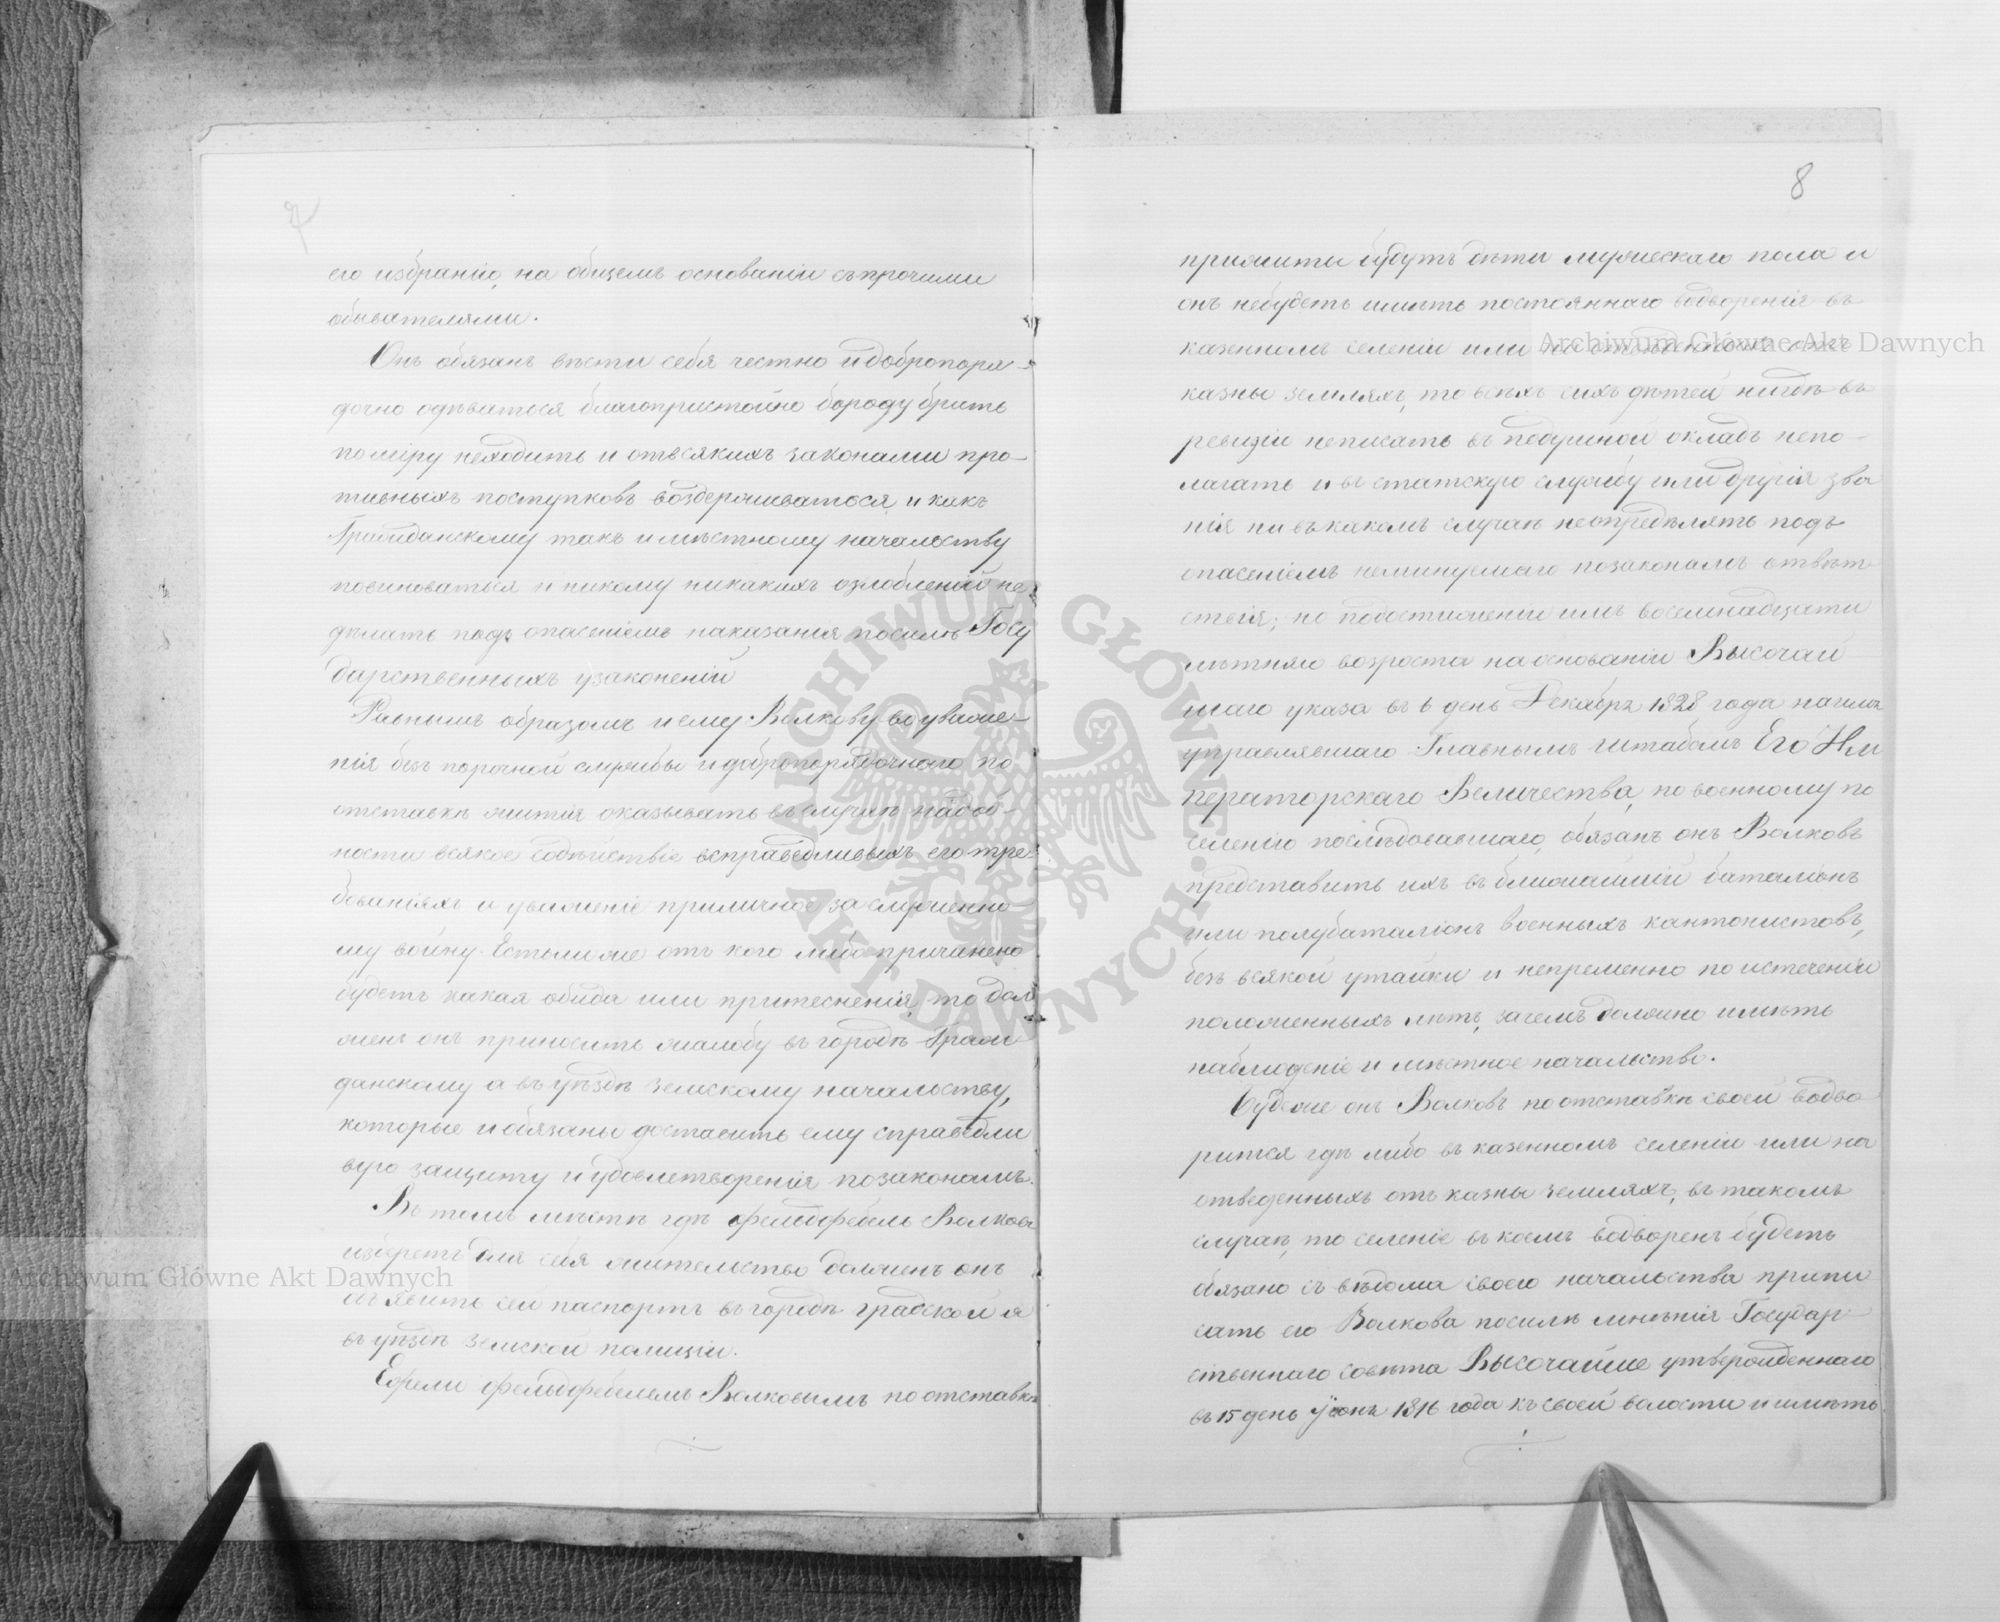 его избранію, на общемъ основаніи съпрочими
обывателями.
Онъ обязанъ вѣсти себя честно и добропоря-
дочно одѣваться благопристойно бороду брить
помиру неходить и отвсякихъ законами про-
тивныхъ поступковъ воздерживаться, и какъ
Гражданскому такъ и мѣстному начальству
повиноваться и никому никакихъ озлобленій не
дѣлать подъ опасеніемъ наказанія посилѣ Госу
дарственныхъ узаконеній
Равнымъ образомъ и ему Волкову во уваже-
нія безъ порочной службы и добропорядочнаго по
отставкѣ житія оказывать въслучаѣ надоб-
ности всякое содѣйствіе всправедливыхъ его тре-
бованіяхъ и уваженіе приличное заслуженно
му войну. Естьли же отъ кого либо причинено
будетъ какая обида или притесненія, то дол
женъ онъ приносить жалобу въ городѣ Граж
данскому а въ уѣздѣ земскому начальству,
которые и обязаны доставить ему справедли
вую защиту и удовлетворенія позаконамъ.
Въ томъ мѣстѣ гдѣ фельдфебель Волковъ
изберетъ для себя жительство долженъ онъ
объявить сей паспортъ въ городѣ градской а
въ уѣздѣ земской полиціи.
Ежели фельдфебелемъ Волковымъ по отставкѣ
8
прижиты будутъ дѣти мужескаго пола и
онъ небудетъ имѣть постояннаго водворенія въ
казенномъ селеніи или на отведенныхъ отъ
казны земляхъ, то всѣхъ сихъ дѣтей нигдѣ въ
ревизію неписать въ подушной окладъ непо-
лагать и въ статскую службу или другія зва
нія ни въ какомъ случаѣ неопредѣлять подъ
опасеніемъ неминуемаго позаконамъ отвѣт
ствія; но подостиженіи имъ восемнадцати
лѣтняго возроста на основаніи Высочай
шаго указа въ 6 день Декабря 1828 года на имя
управлявшаго Главнымъ штабомъ Его Им
ператорскаго Величества, по военному по
селенію послѣдовавшаго, обязанъ онъ Волковъ
представить ихъ въ ближайшій баталіонъ
или полубаталіонъ военныхъ кантонистовъ,
безъ всякой утайки и непременно по истеченіи
положенныхъ лѣтъ, зачемъ должно имѣть
наблюденіе и мѣстное начальство.
Буде же онъ Волковъ по отставкѣ своей водво
рится гдѣ либо въ казенномъ селеніи или на
отведенныхъ отъ казны земляхъ, въ такомъ
случаѣ, то селеніе въ коемъ водворенъ будетъ
обязано съ вѣдома своего начальства припи
сать его Волкова посилѣ мнѣнія Государ
ственнаго совѣта Высочайше утвержденнаго
въ 15 день Іюня 1816 года къ своей волости и имѣть
Archiwum Główne Akt Dawnych
Archiwum Główne Akt Dawnych
ARCHIWUM GŁÓWNE AKT DAWNYCH